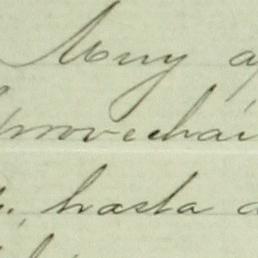 Muy a
provechai
hasta